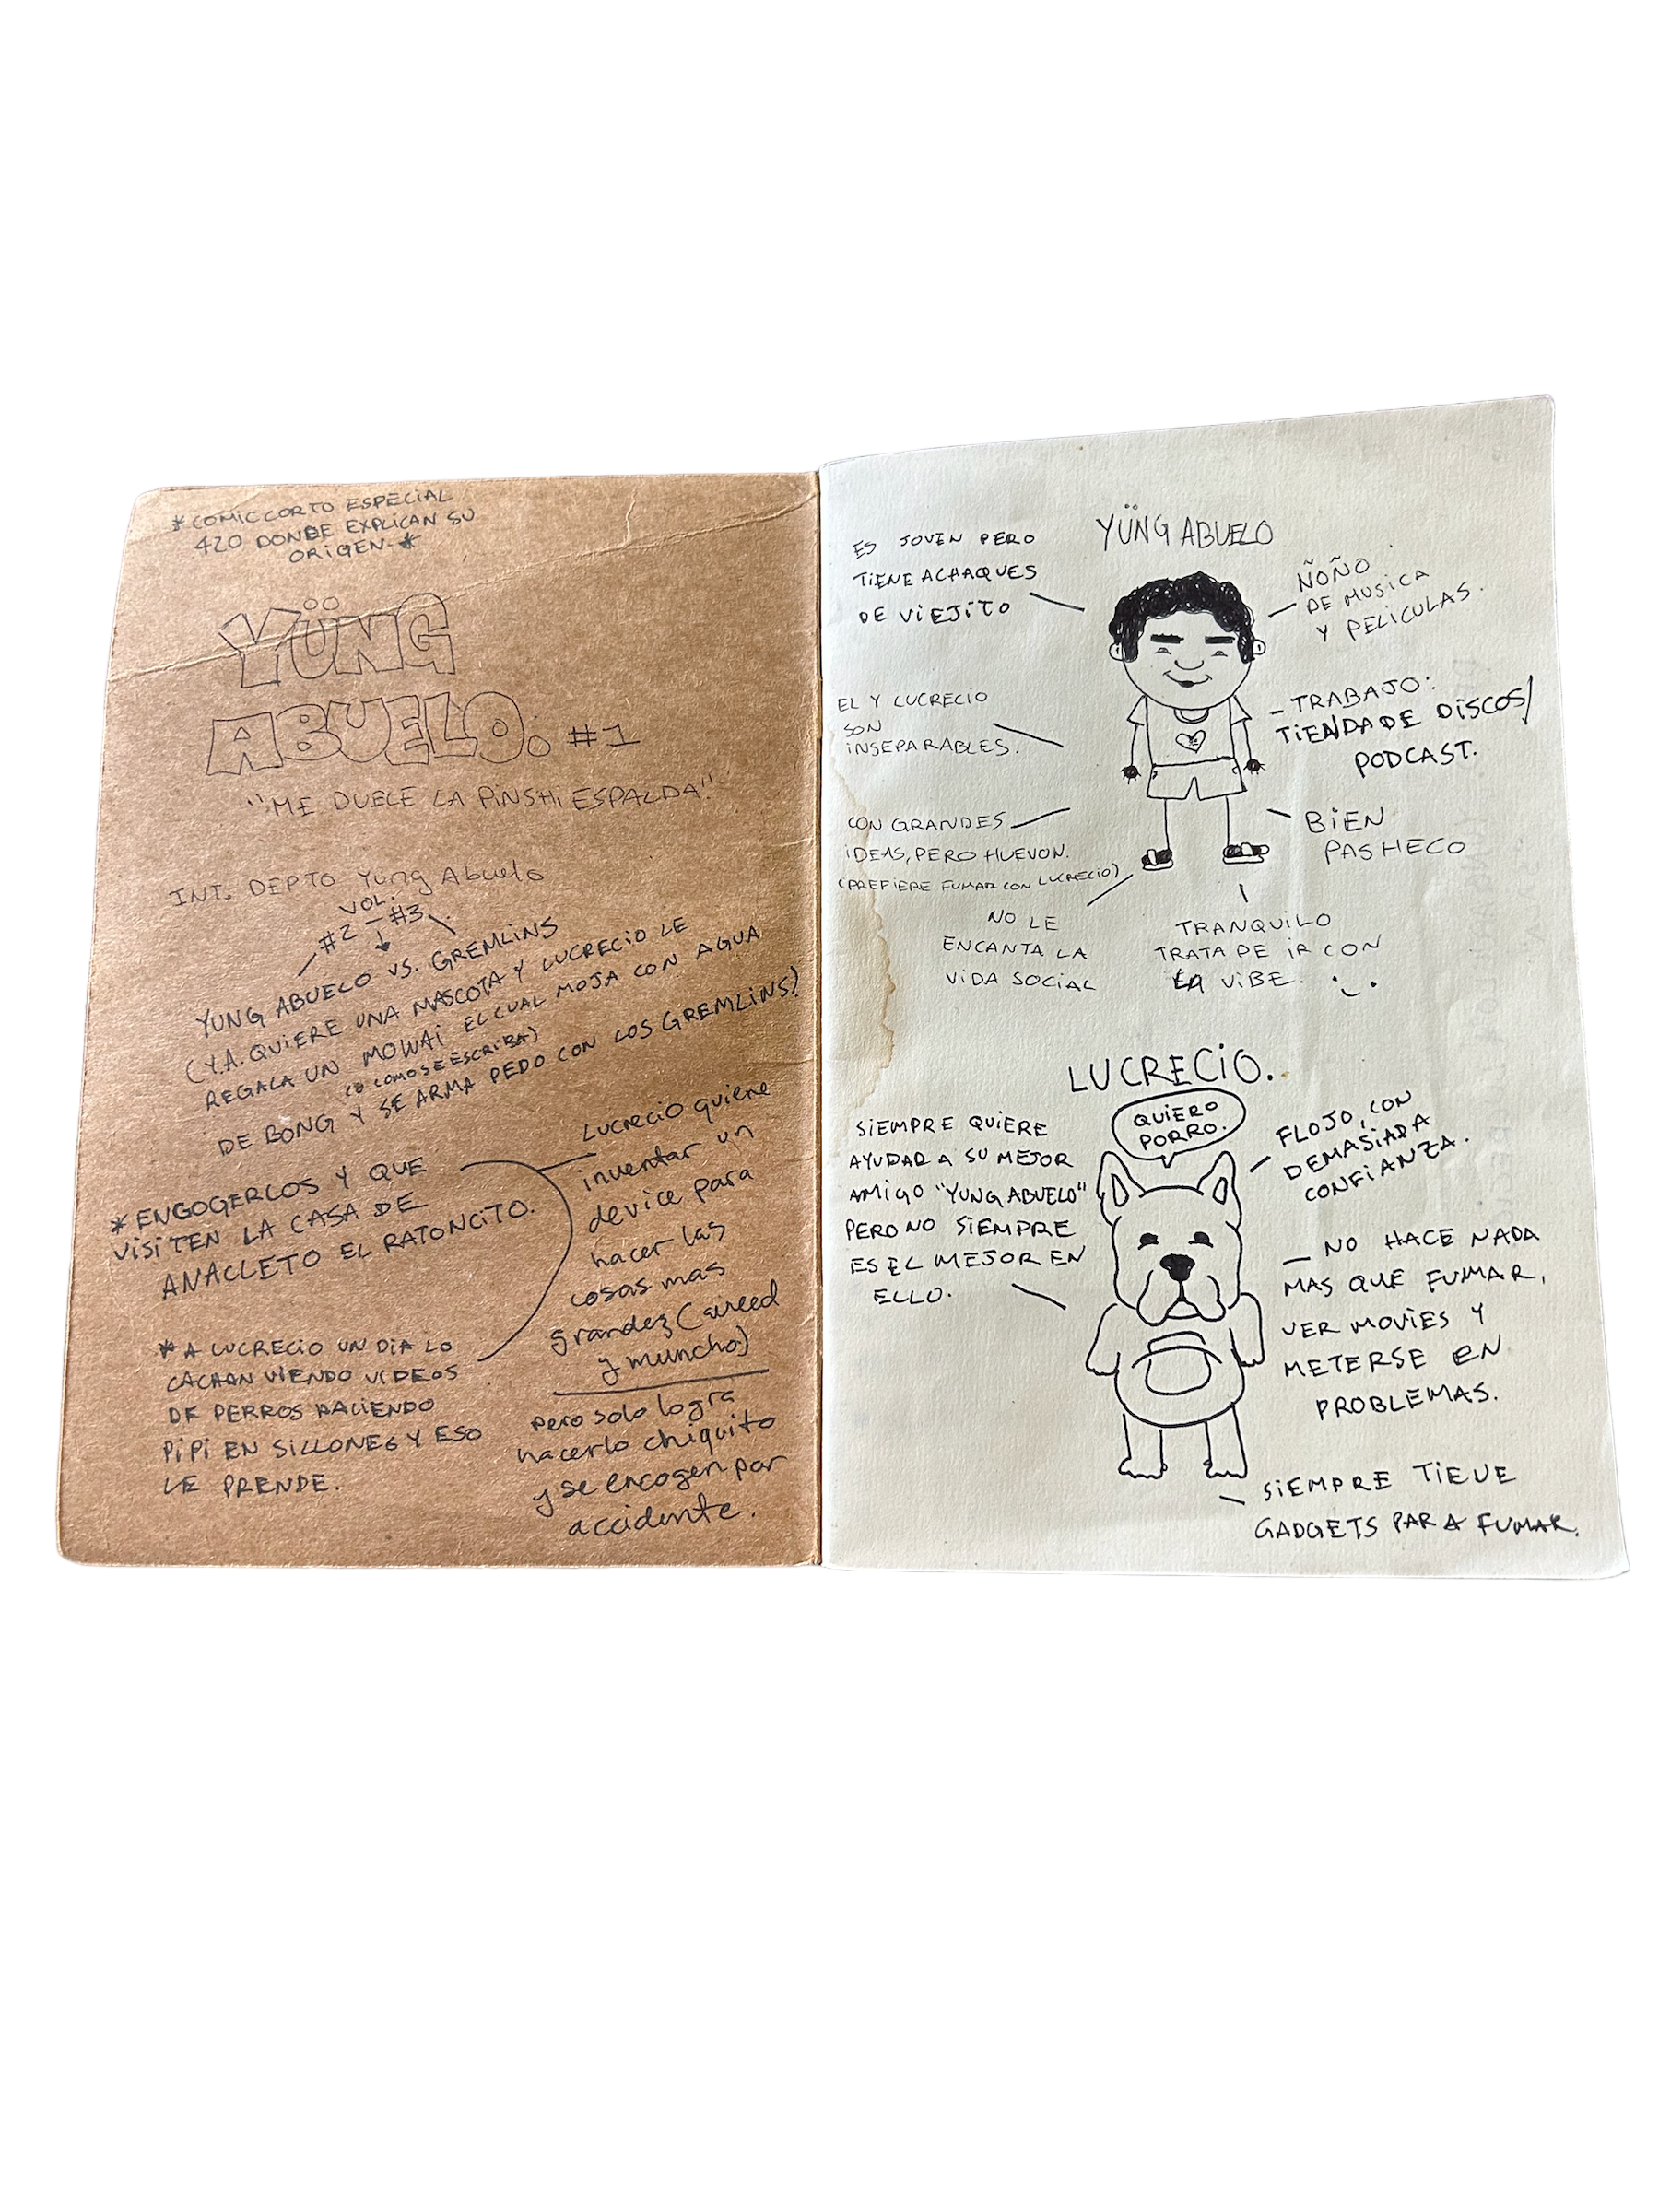 *COMIC CORTO ESPECIAL
420 DONDE EXPLICAN SU
ORIGEN.*
YÜNG
ABUELO: #1
"ME DUELE LA PINSHI ESPALDA!"
INT. DEPTO Yüng Abuelo
VOL.
#2 - #3
YUNG ABUELO VS. GREMLINS
(Y.A. QUIERE UNA MASCOTA Y LUCRECIO LE
REGALA UN MOWAI EL CUAL MOJA CON AGUA
(O COMO SE ESCRIBA)
DE BONG Y SE ARMA PEDO CON LOS GREMLINS)
*ENGOGERLOS Y QUE
VISITEN LA CASA DE
ANACLETO EL RATONCITO.
*A LUCRECIO UN DIA LO
CACHAN VIENDO VIDEOS
DE PERROS HACIENDO
PIPI EN SILLONES Y ESO
LE PRENDE.
Lucrecio quiere
inventar un
device para
hacer las
cosas mas
grandez (weed
y muncho)
pero solo logra
hacerlo chiquito
y se encogen por
accidente.
YÜNG ABUELO
ES JOVEN PERO
TIENE ACHAQUES
DE VIEJITO
ÑOÑO
DE MUSICA
Y PELICULAS.
EL Y LUCRECIO
SON
INSEPARABLES.
-TRABAJO:
TIENDA DE DISCOS/
PODCAST.
CON GRANDES
IDEAS, PERO HUEVON.
(PREFIERE FUMAR CON LUCRECIO)
BIEN
PASHECO
NO LE
ENCANTA LA
VIDA SOCIAL
TRANQUILO
TRATA DE IR CON
LA VIBE.
LUCRECIO.
QUIERO
PORRO.
SIEMPRE QUIERE
AYUDAR A SU MEJOR
AMIGO "YUNG ABUELO"
PERO NO SIEMPRE
ES EL MEJOR EN
ELLO.
FLOJO, CON
DEMASIADA
CONFIANZA.
-NO HACE NADA
MAS QUE FUMAR,
VER MOVIES Y
METERSE EN
PROBLEMAS.
SIEMPRE TIENE
GADGETS PARA FUMAR.